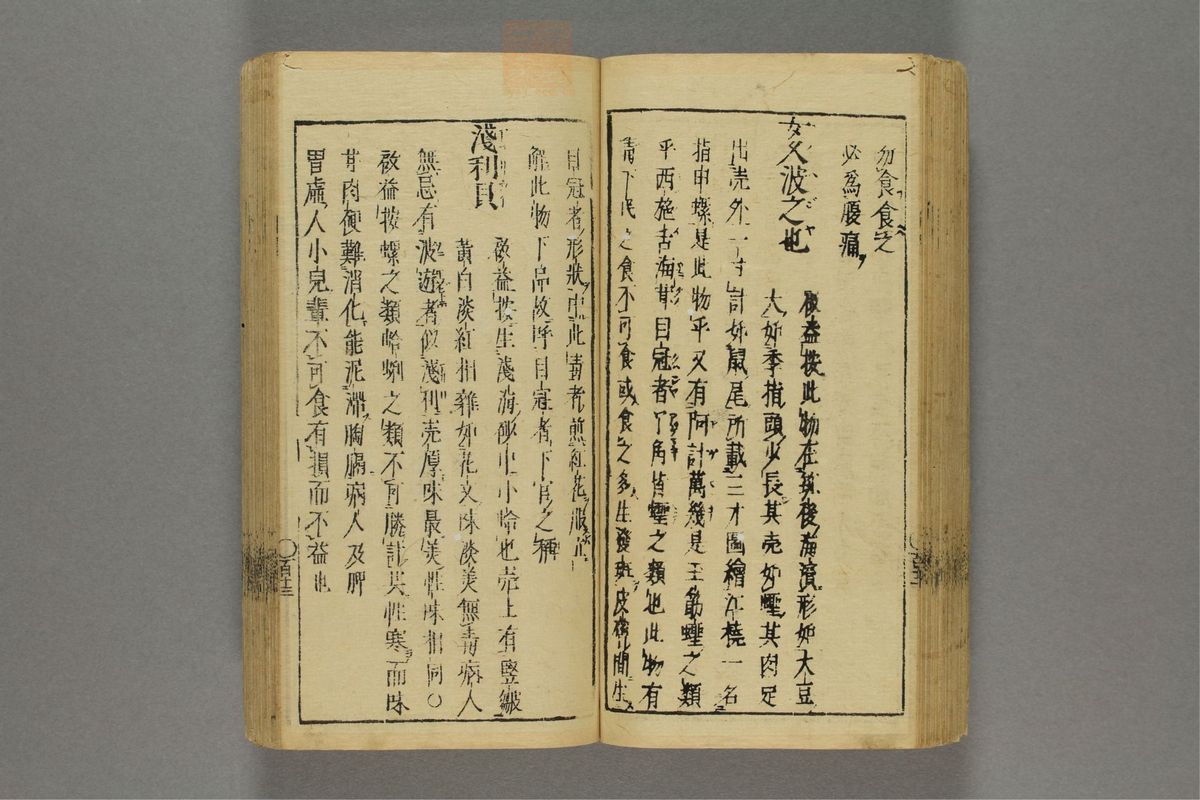 勿食食之
必為腹痛
女波之也
啓益按此物在狹後海濱形如大豆
大如季指頭少長其壳如蟶其肉足
出壳外一寸計如鼠尾所載三才圖繪江橈一名
指甲螺是此物乎又有阿計萬幾是王肋蟶之類
乎西施舌海茸目冠者丫角皆蟶之類也此物有
毒下民之食不可食或食之多生發斑皮後間生
目冠者形狀出此毒者煎紅花服立
解此物下品故呼目冠者下官之稱
淺利貝
啓益按生淺海砂中小蛤也壳上有竪皺
黃白淡紅相雜如花文味淡美無毒病人
無忌有波遊者似淺利壳厚味最美性味相同〇
啟益按螺之類蛤蜊之類不可勝計其性寒而味
其肉硬難消化能泥滯胸膈病人及脾
胃虛人小兒輩不可食有損而不益也
〇百十三